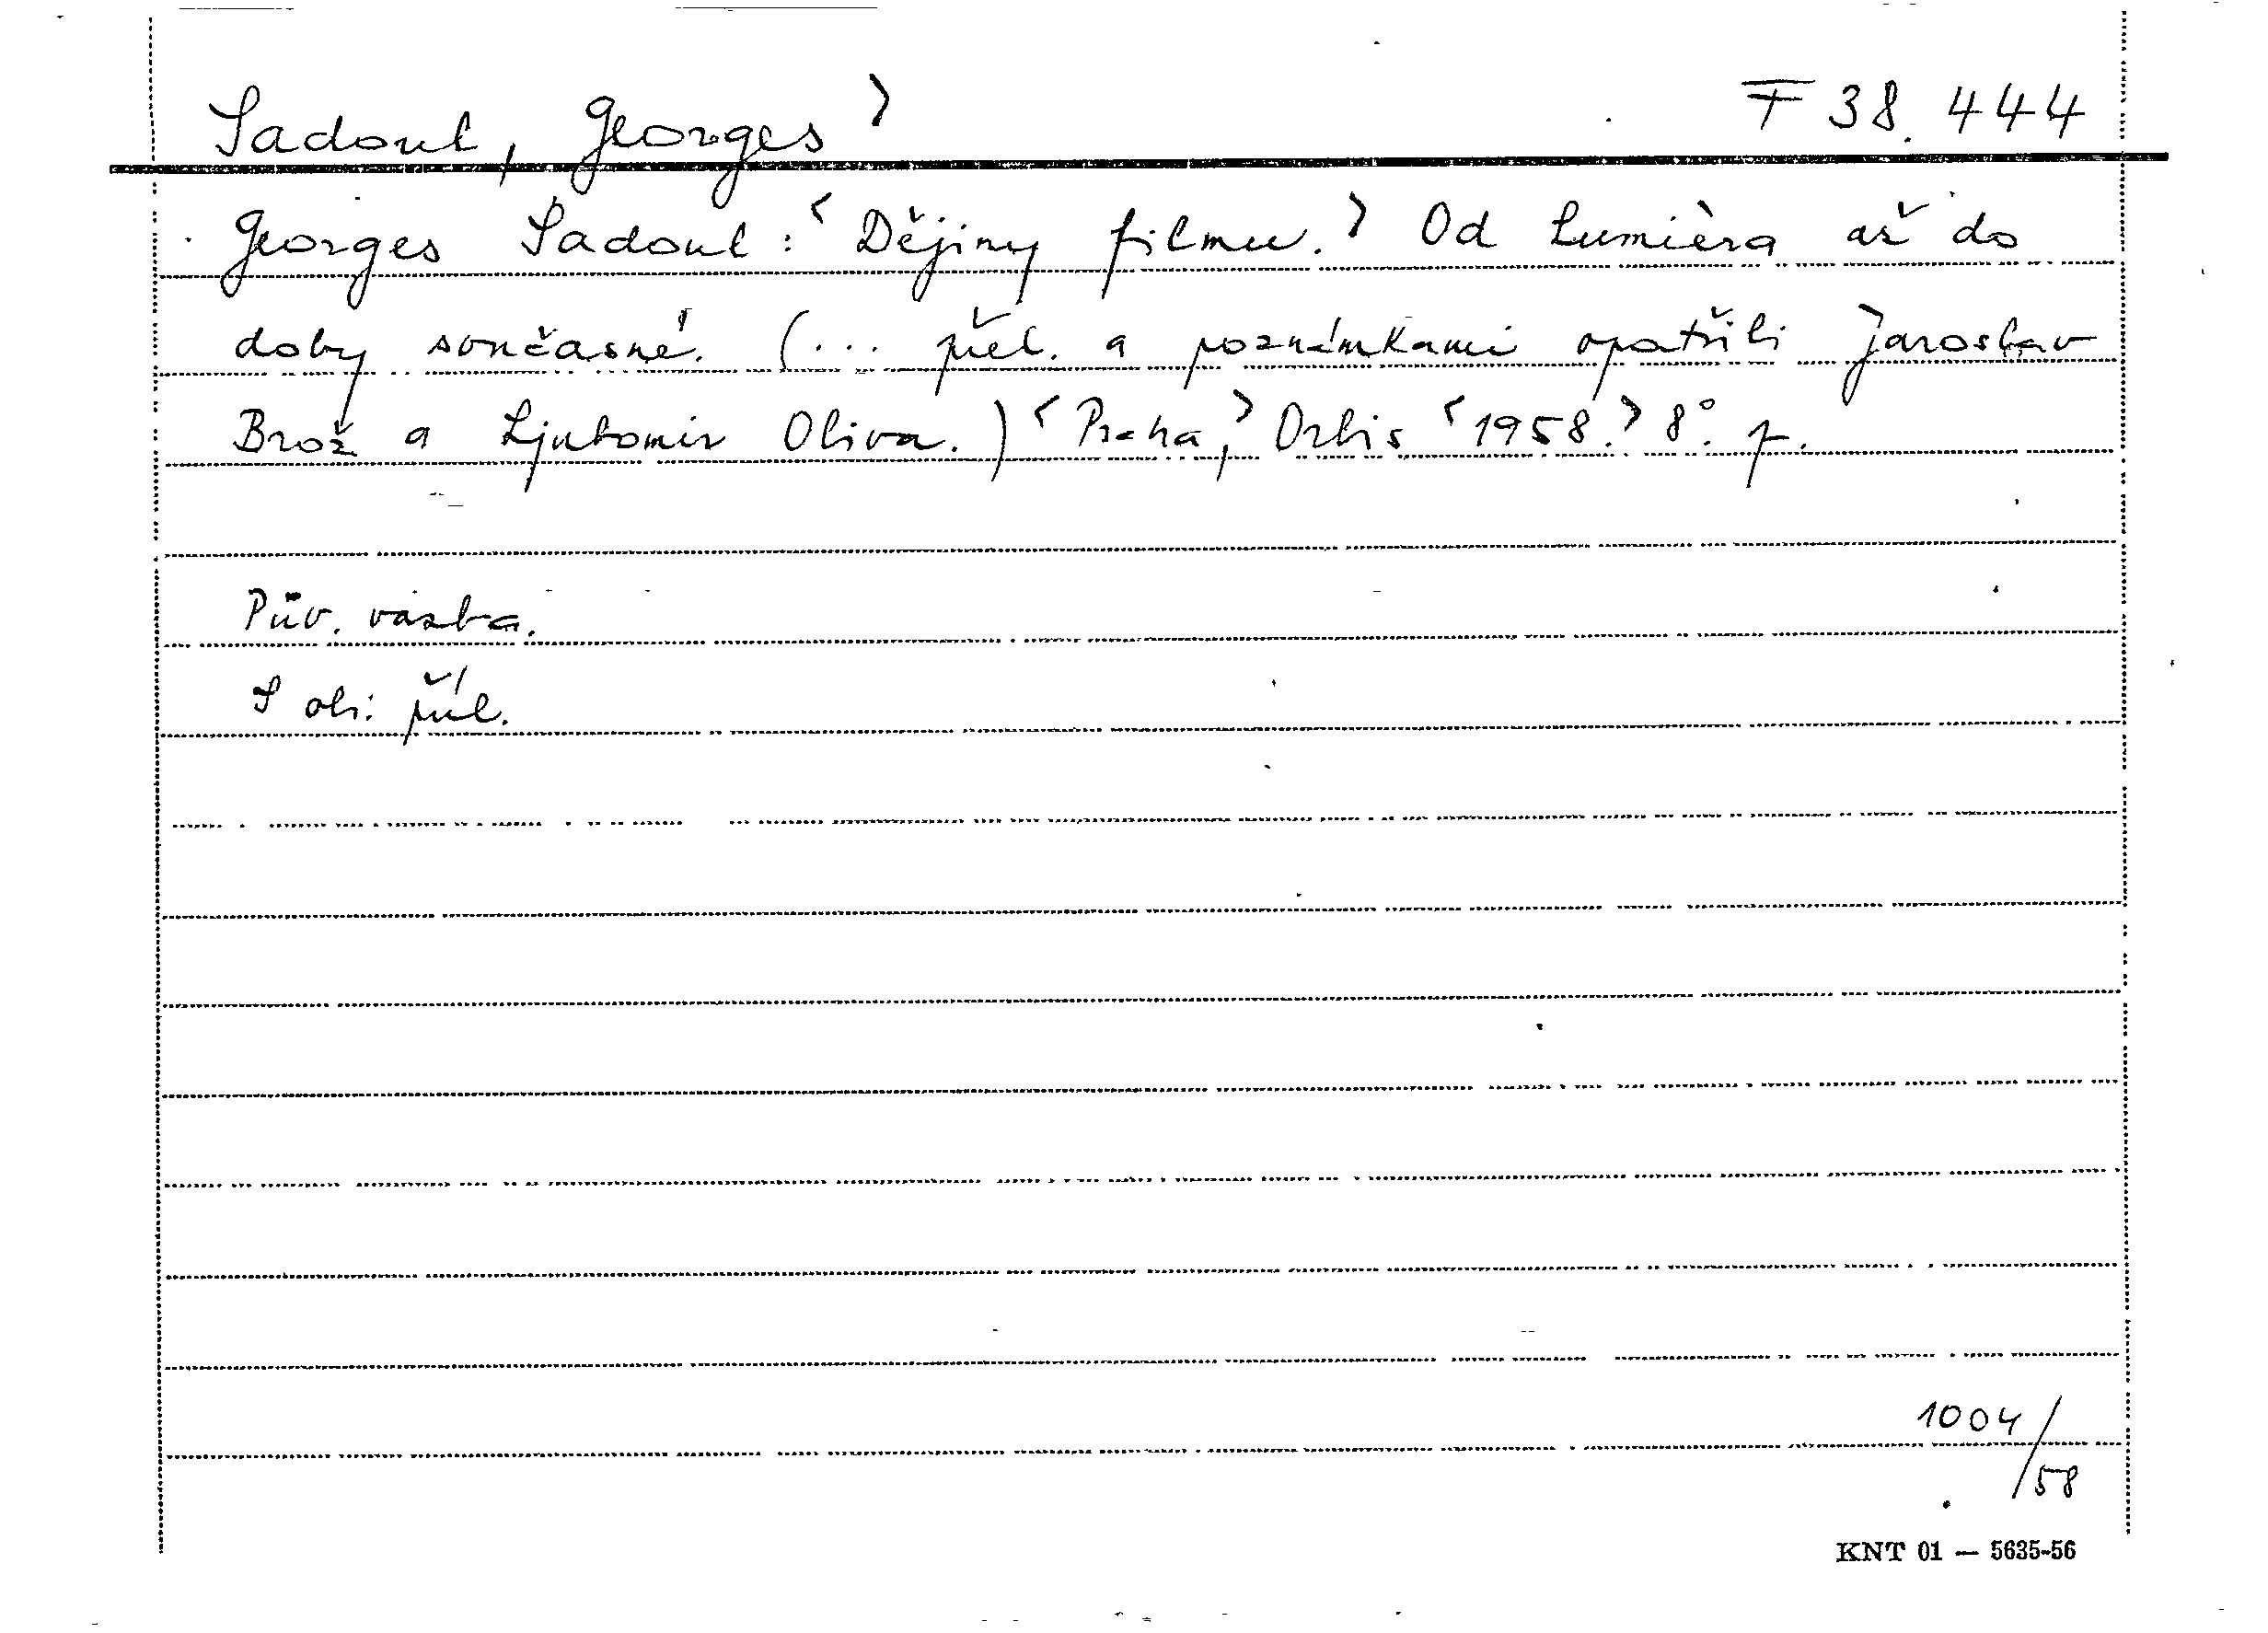 Sadoul, Georges > F 38.444
Georges Sadoul: <Dějiny filmu.> Od Lumièra až do
doby současné. (... přel. a poznámkami opatřili Jaroslav
Brož a Ljubomír Oliva.) <Praha,> Orbis <1958.> 8°. p.
Pův. vazba.
S obr. příl.
1004/58
KNT 01 — 5635-56